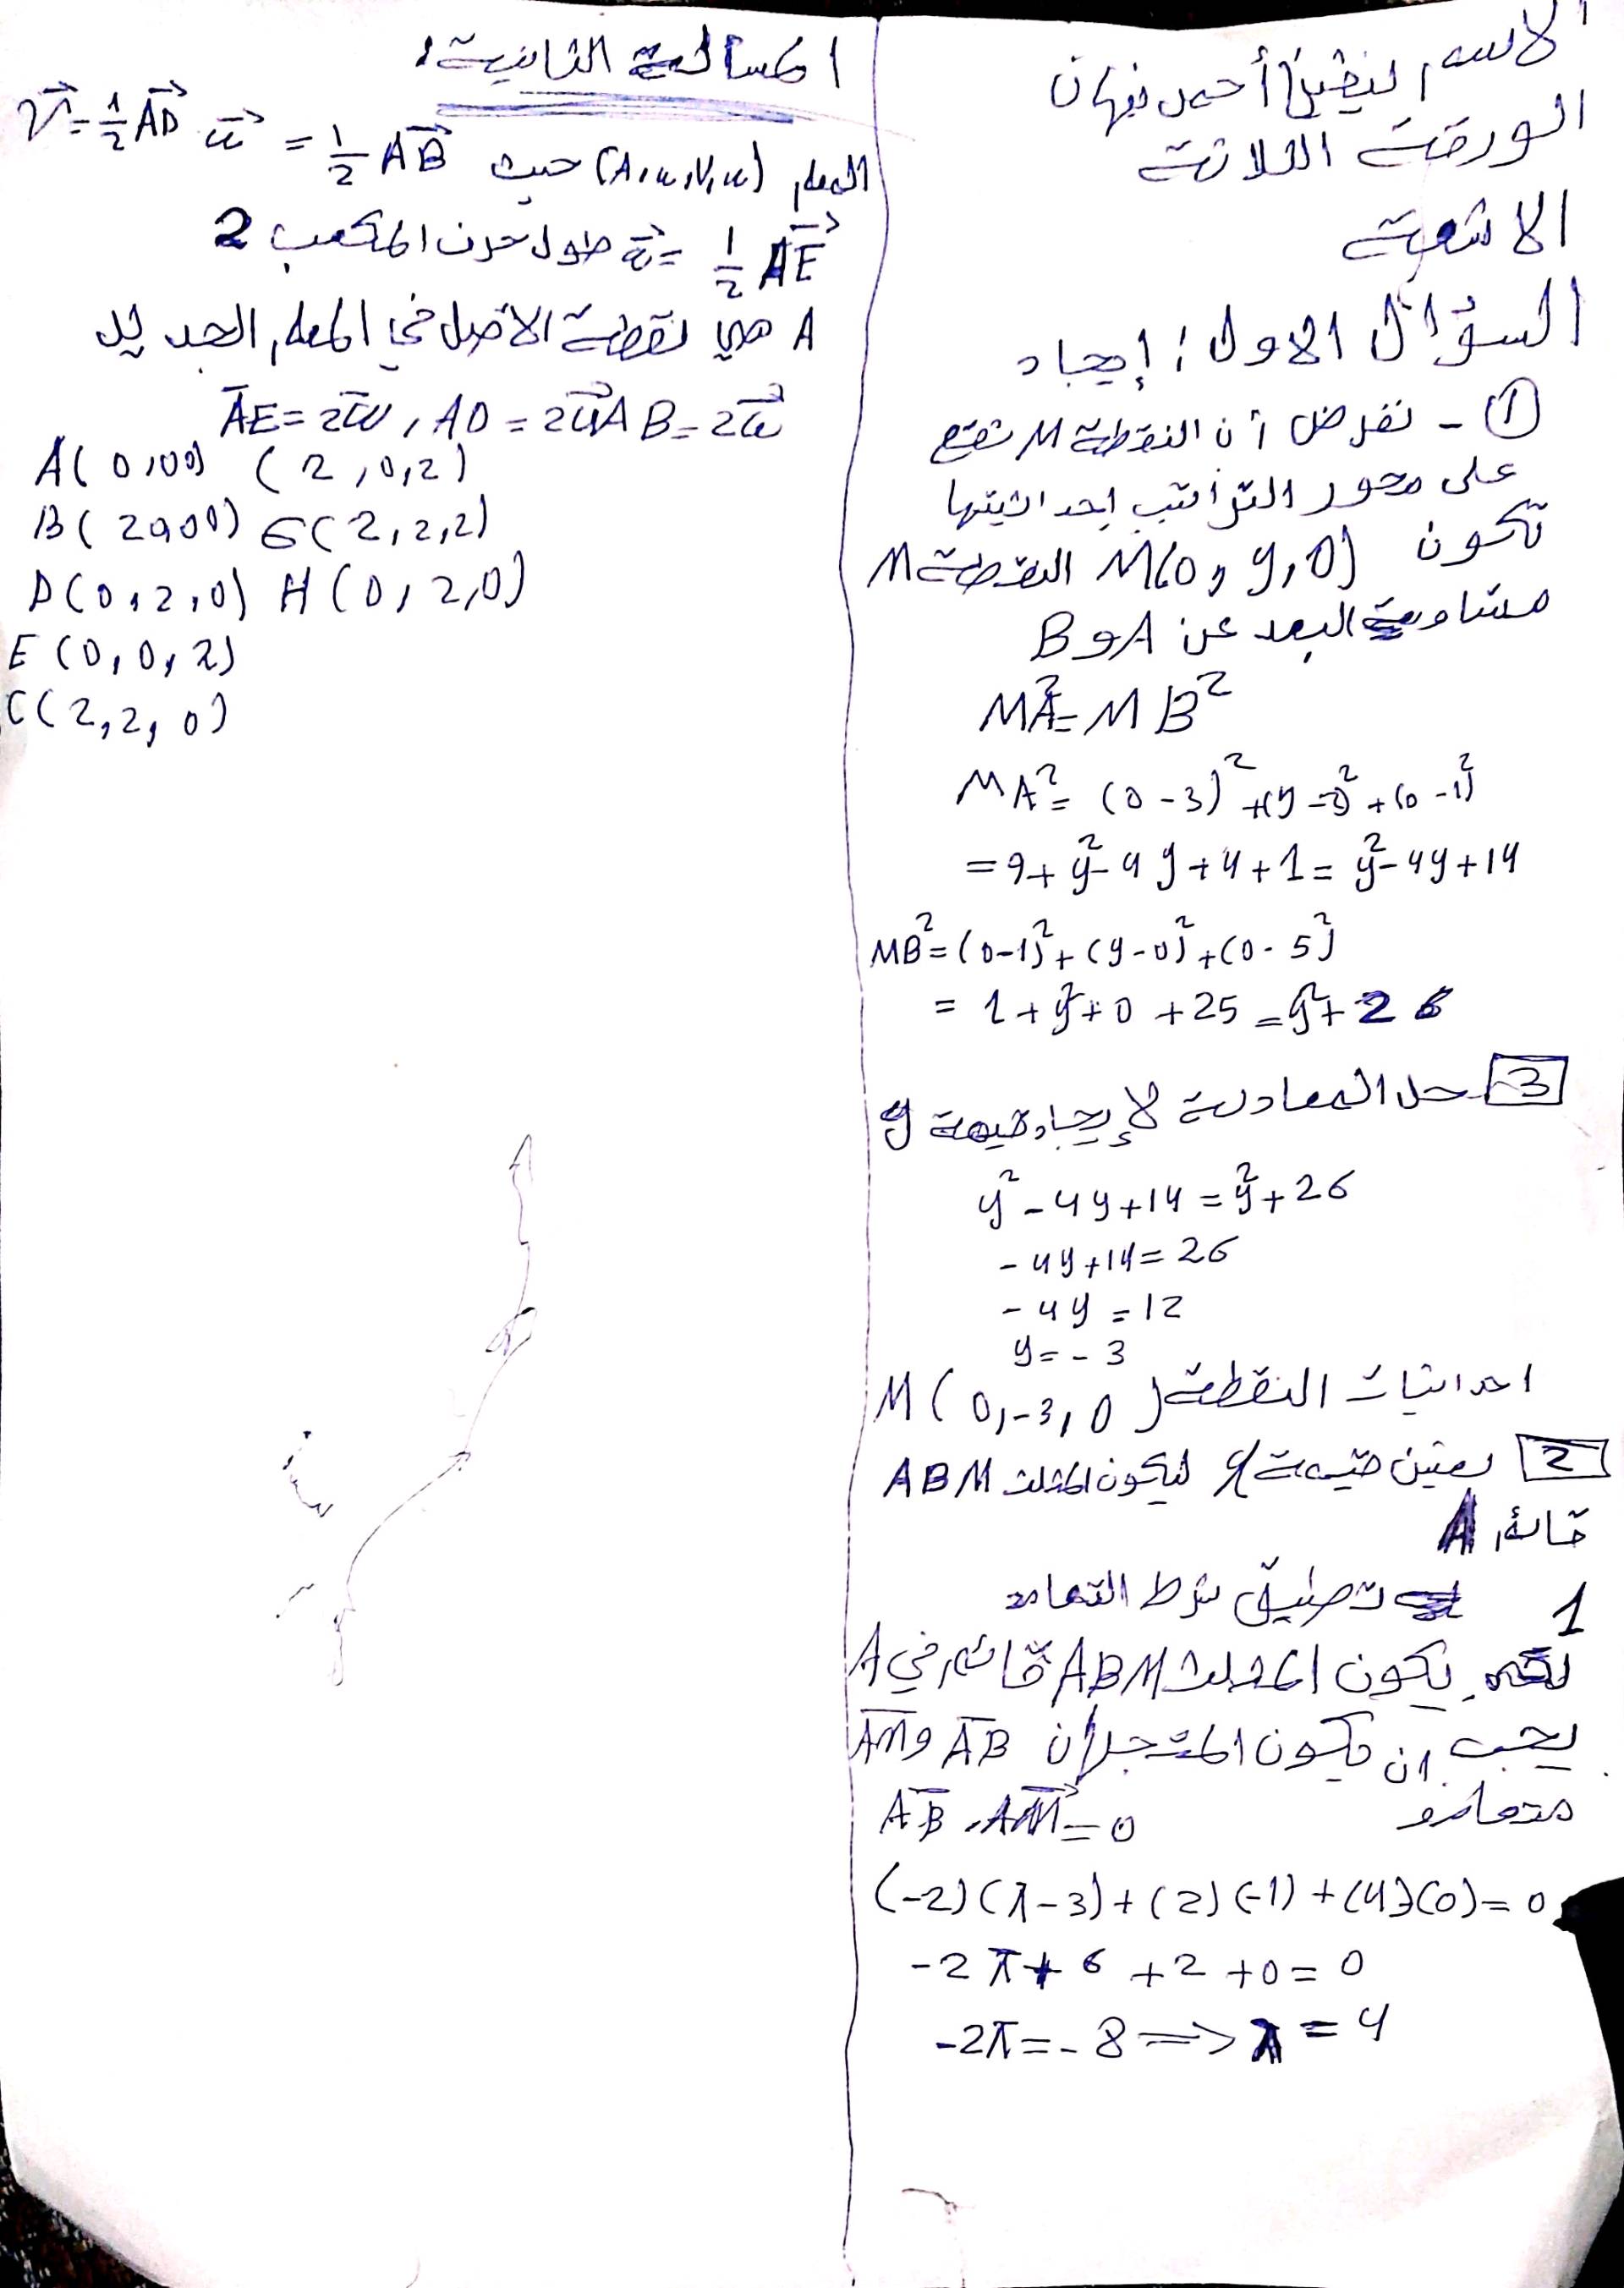 الاسم لنيفين أحمد نبهان
الورقة الثلاثة
الاشعة
السؤال الاول : إيجاد
① - نفرض أن النقطة M تقع
على محور التراتيب إحداثيتها
تكون M(0, y, 0) النقطة M
متساوية البعد عن A و B
MA² = MB²
MA² = (0-3)² + (y-2)² + (0-1)²
= 9 + y² - 4y + 4 + 1 = y² - 4y + 14
MB² = (0-1)² + (y-0)² + (0-5)²
= 1 + y² + 0 + 25 = y² + 26
3 - حل المعادلة لإيجاد قيمة y
y² - 4y + 14 = y² + 26
-4y + 14 = 26
-4y = 12
y = -3
احداثيات النقطة M(0, -3, 0)
2 يعين قيمة λ ليكون المثلث ABM
قائم A
1 تطبيق شرط التعامد
يكون المثلث ABM قائم في A
يجب ان يكون المتجهان AB و AM
متعامدو AB . AM = 0
(-2)(λ-3) + (2)(-1) + (4)(0) = 0
-2λ + 6 + 2 + 0 = 0
-2λ = -8 => λ = 4
المسالة الثانية :
المعلم (A, u, v, w) حيث u = 1/2 AB v = 1/2 AD
w = 1/2 AE طول حرف المكعب 2
A هي نقطة الأصل في المعلم الجديد
AE = 2w , AD = 2v AB = 2u
A(0,00) (2,0,2)
B(2,0,0) G(2,2,2)
D(0,2,0) H(0,2,0)
E(0,0,2)
C(2,2,0)